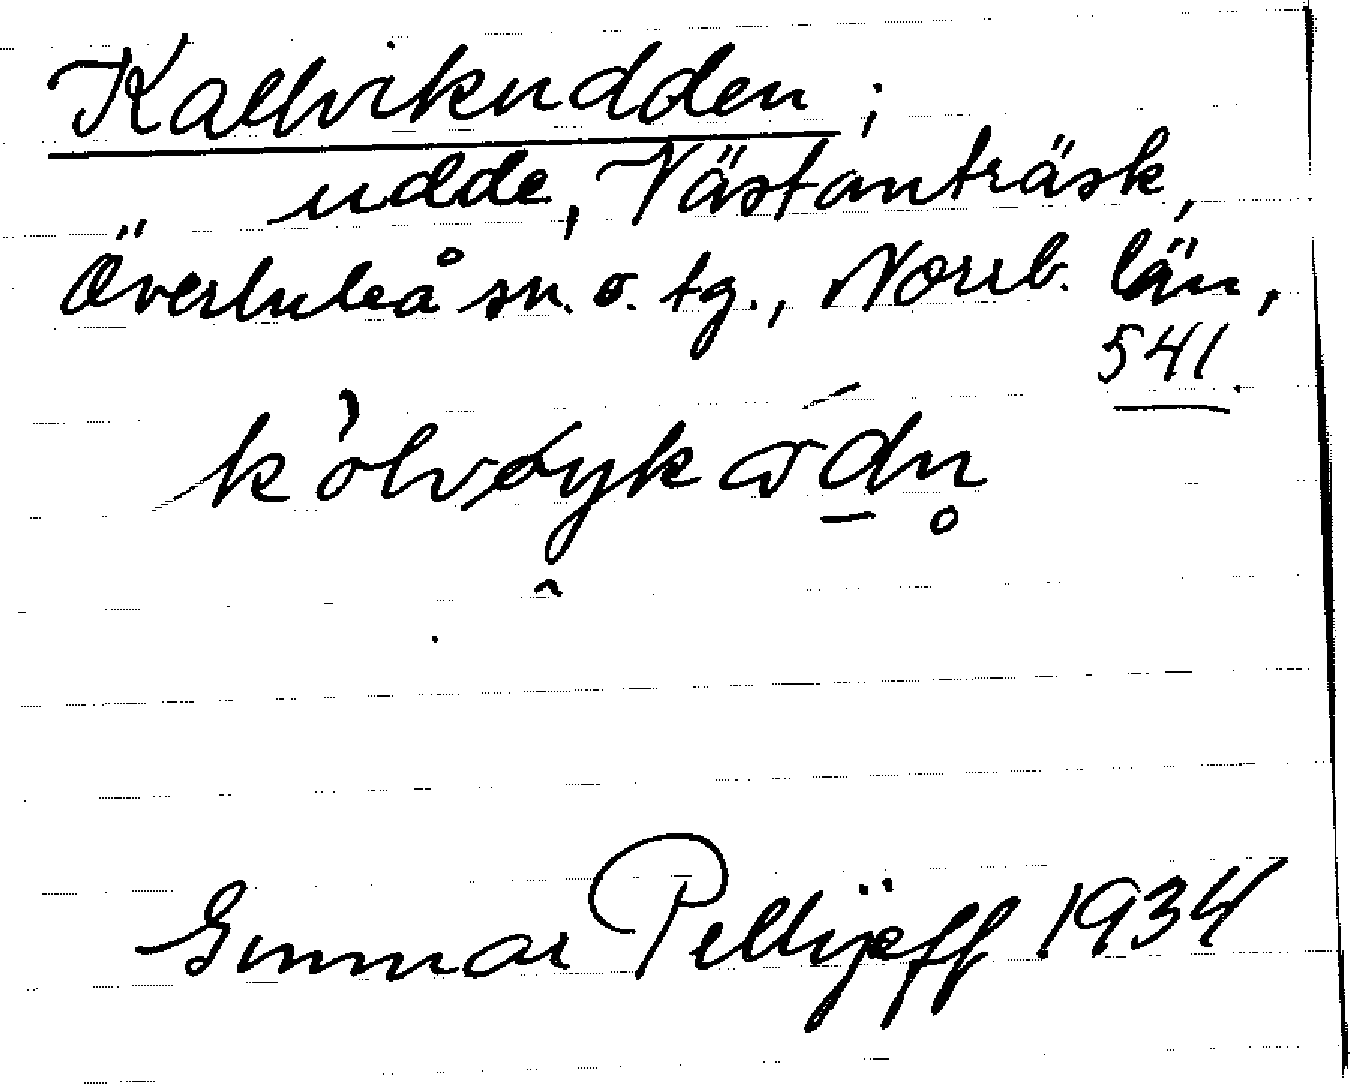 Kallvikudden;
udde, Västanträsk,
Överluleå sn. o. tg., Norrb. län,
541.
Gunnar Pellijeff 1934